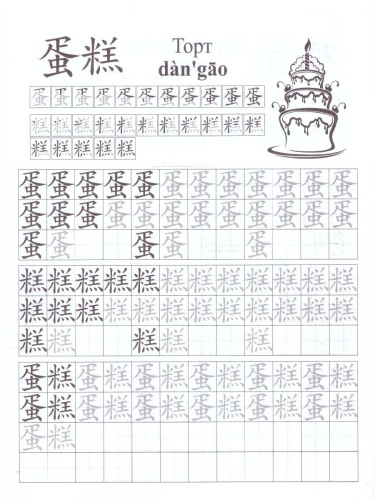 蛋糕
Торт
dàn'gāo
蛋蛋蛋蛋蛋蛋蛋蛋蛋蛋蛋
糕糕糕糕糕糕糕糕糕糕糕
糕糕糕糕糕
蛋蛋蛋蛋蛋蛋蛋蛋蛋蛋蛋蛋
蛋蛋蛋蛋蛋蛋蛋蛋蛋蛋蛋蛋
蛋蛋 蛋蛋 蛋
糕糕糕糕糕糕糕糕糕糕糕糕
糕糕糕糕糕糕糕糕糕糕糕糕
糕糕 糕糕 糕
蛋糕蛋糕蛋糕蛋糕蛋糕蛋糕
蛋糕蛋糕蛋糕蛋糕蛋糕蛋糕
蛋糕